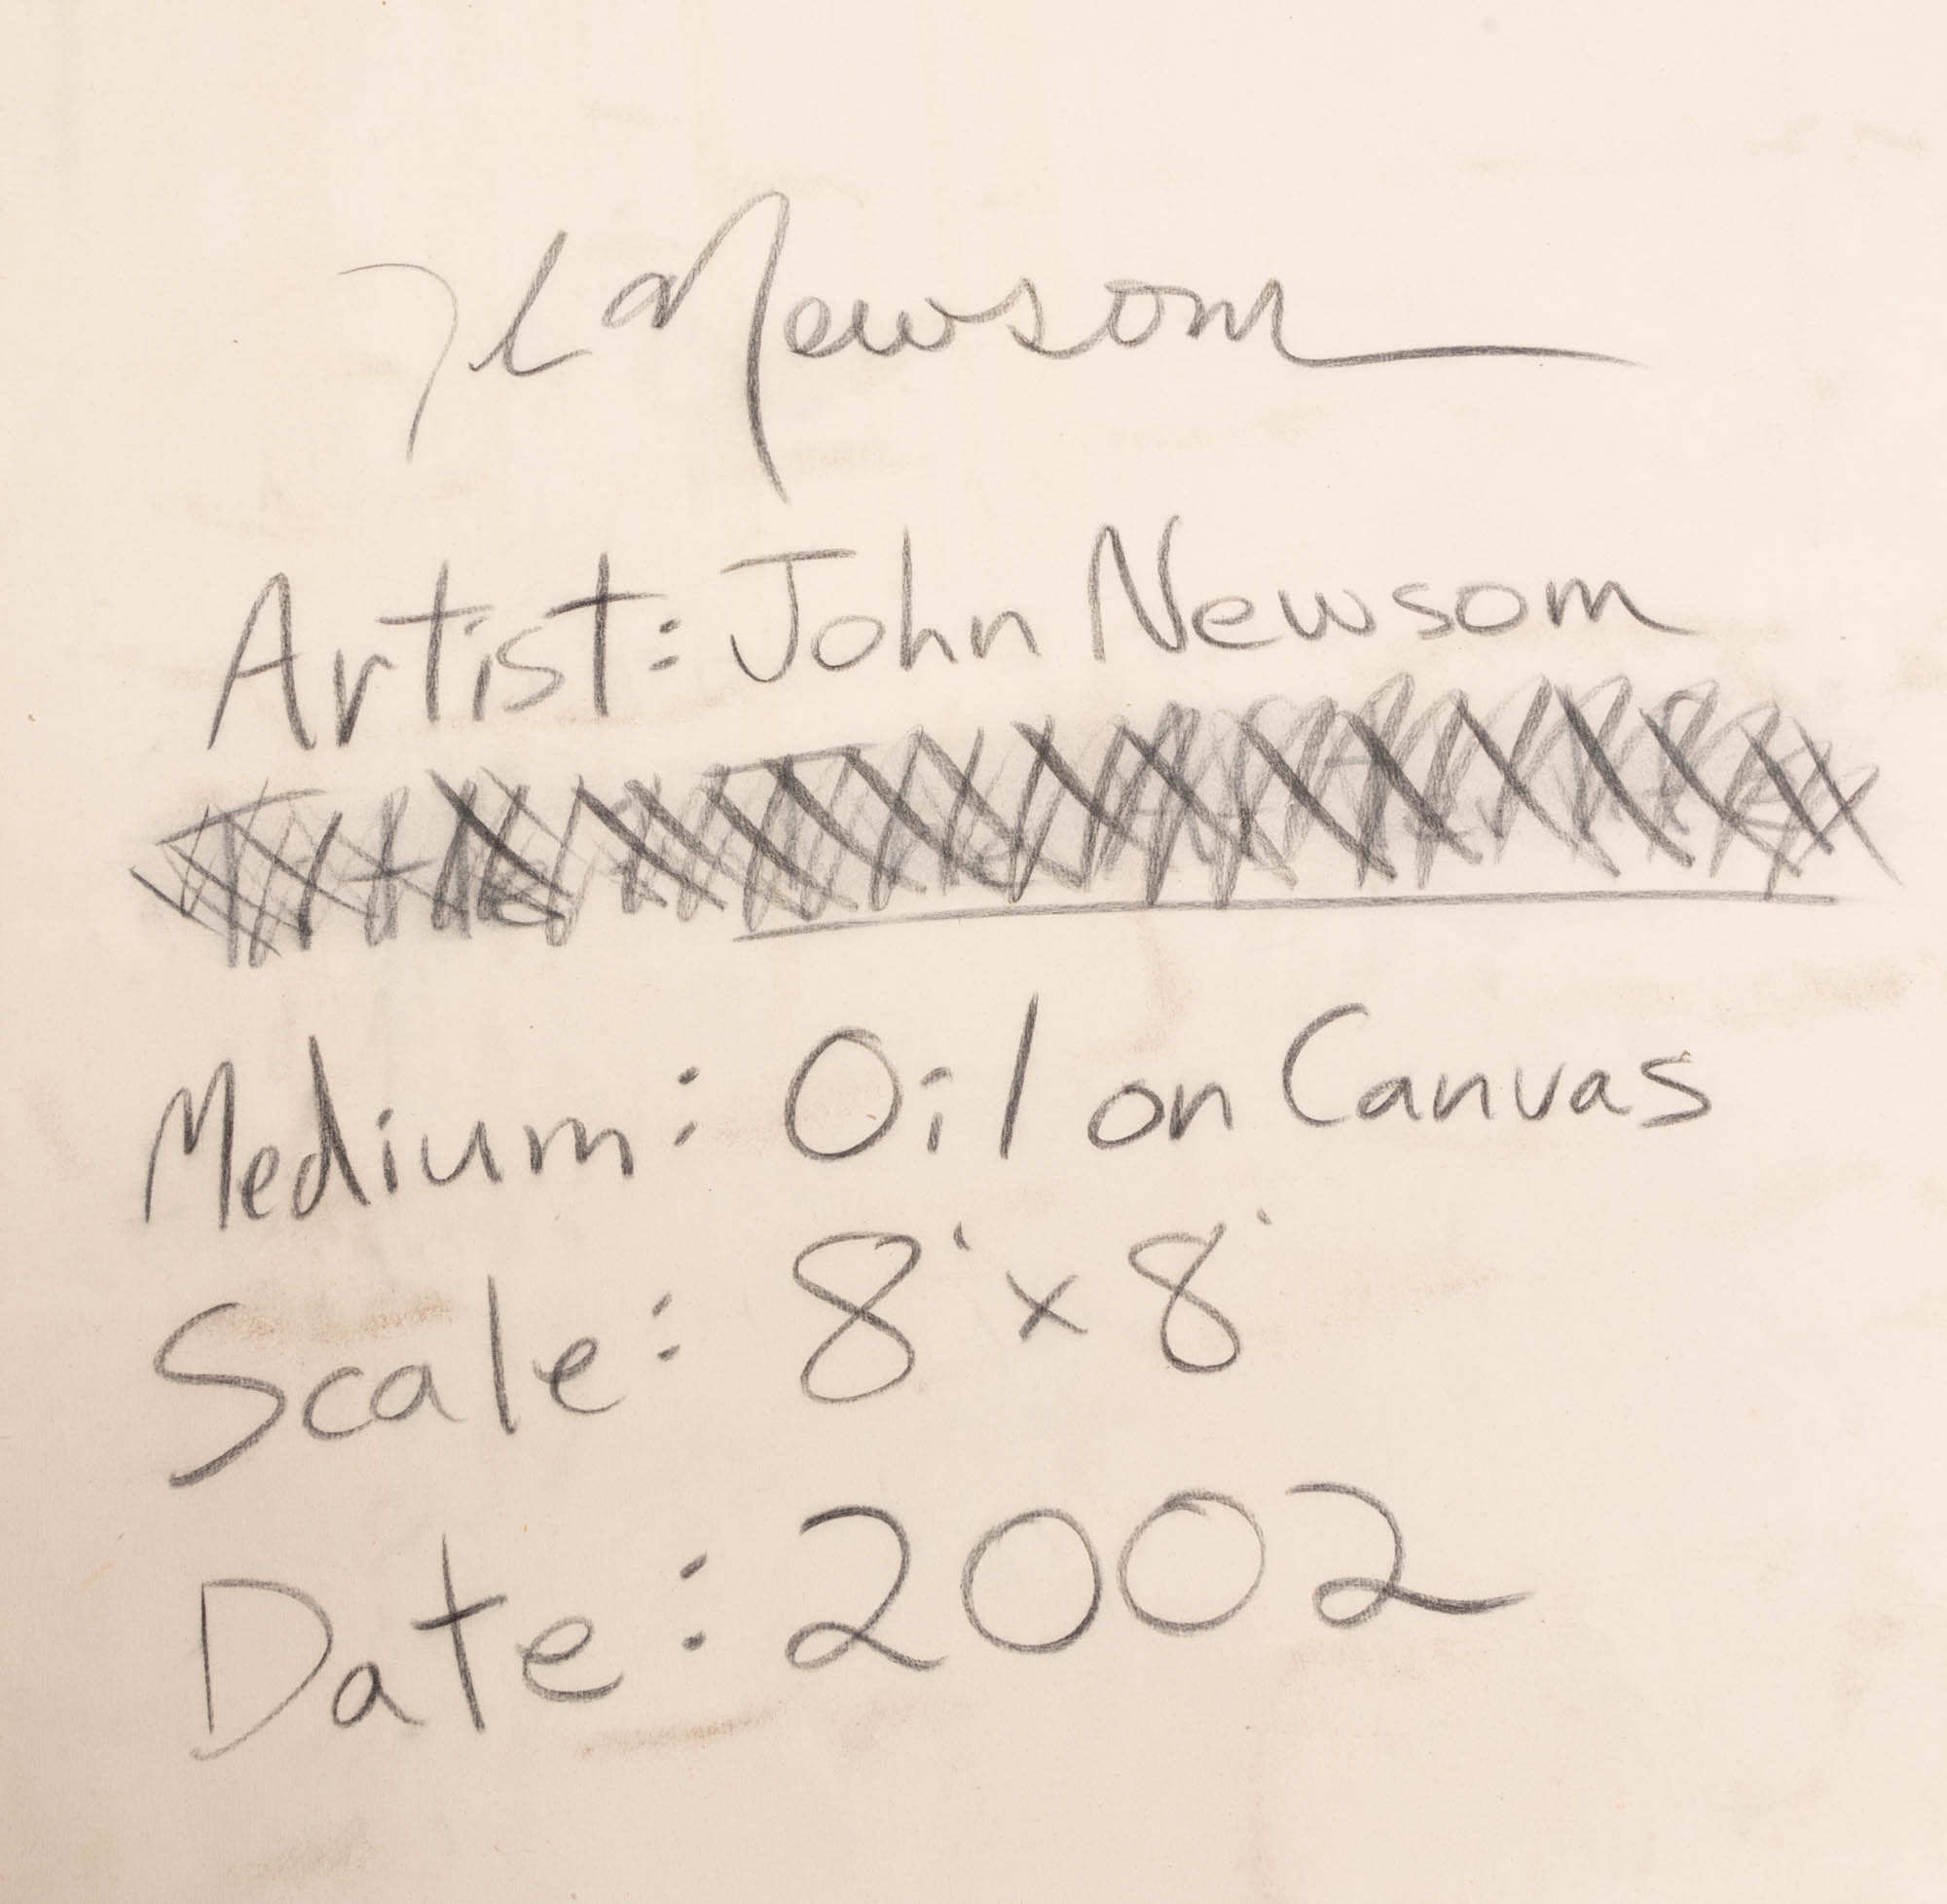 Newsom
Artist: John Newsom
Medium: Oil on Canvas
Scale: 8' x 8'
Date: 2002